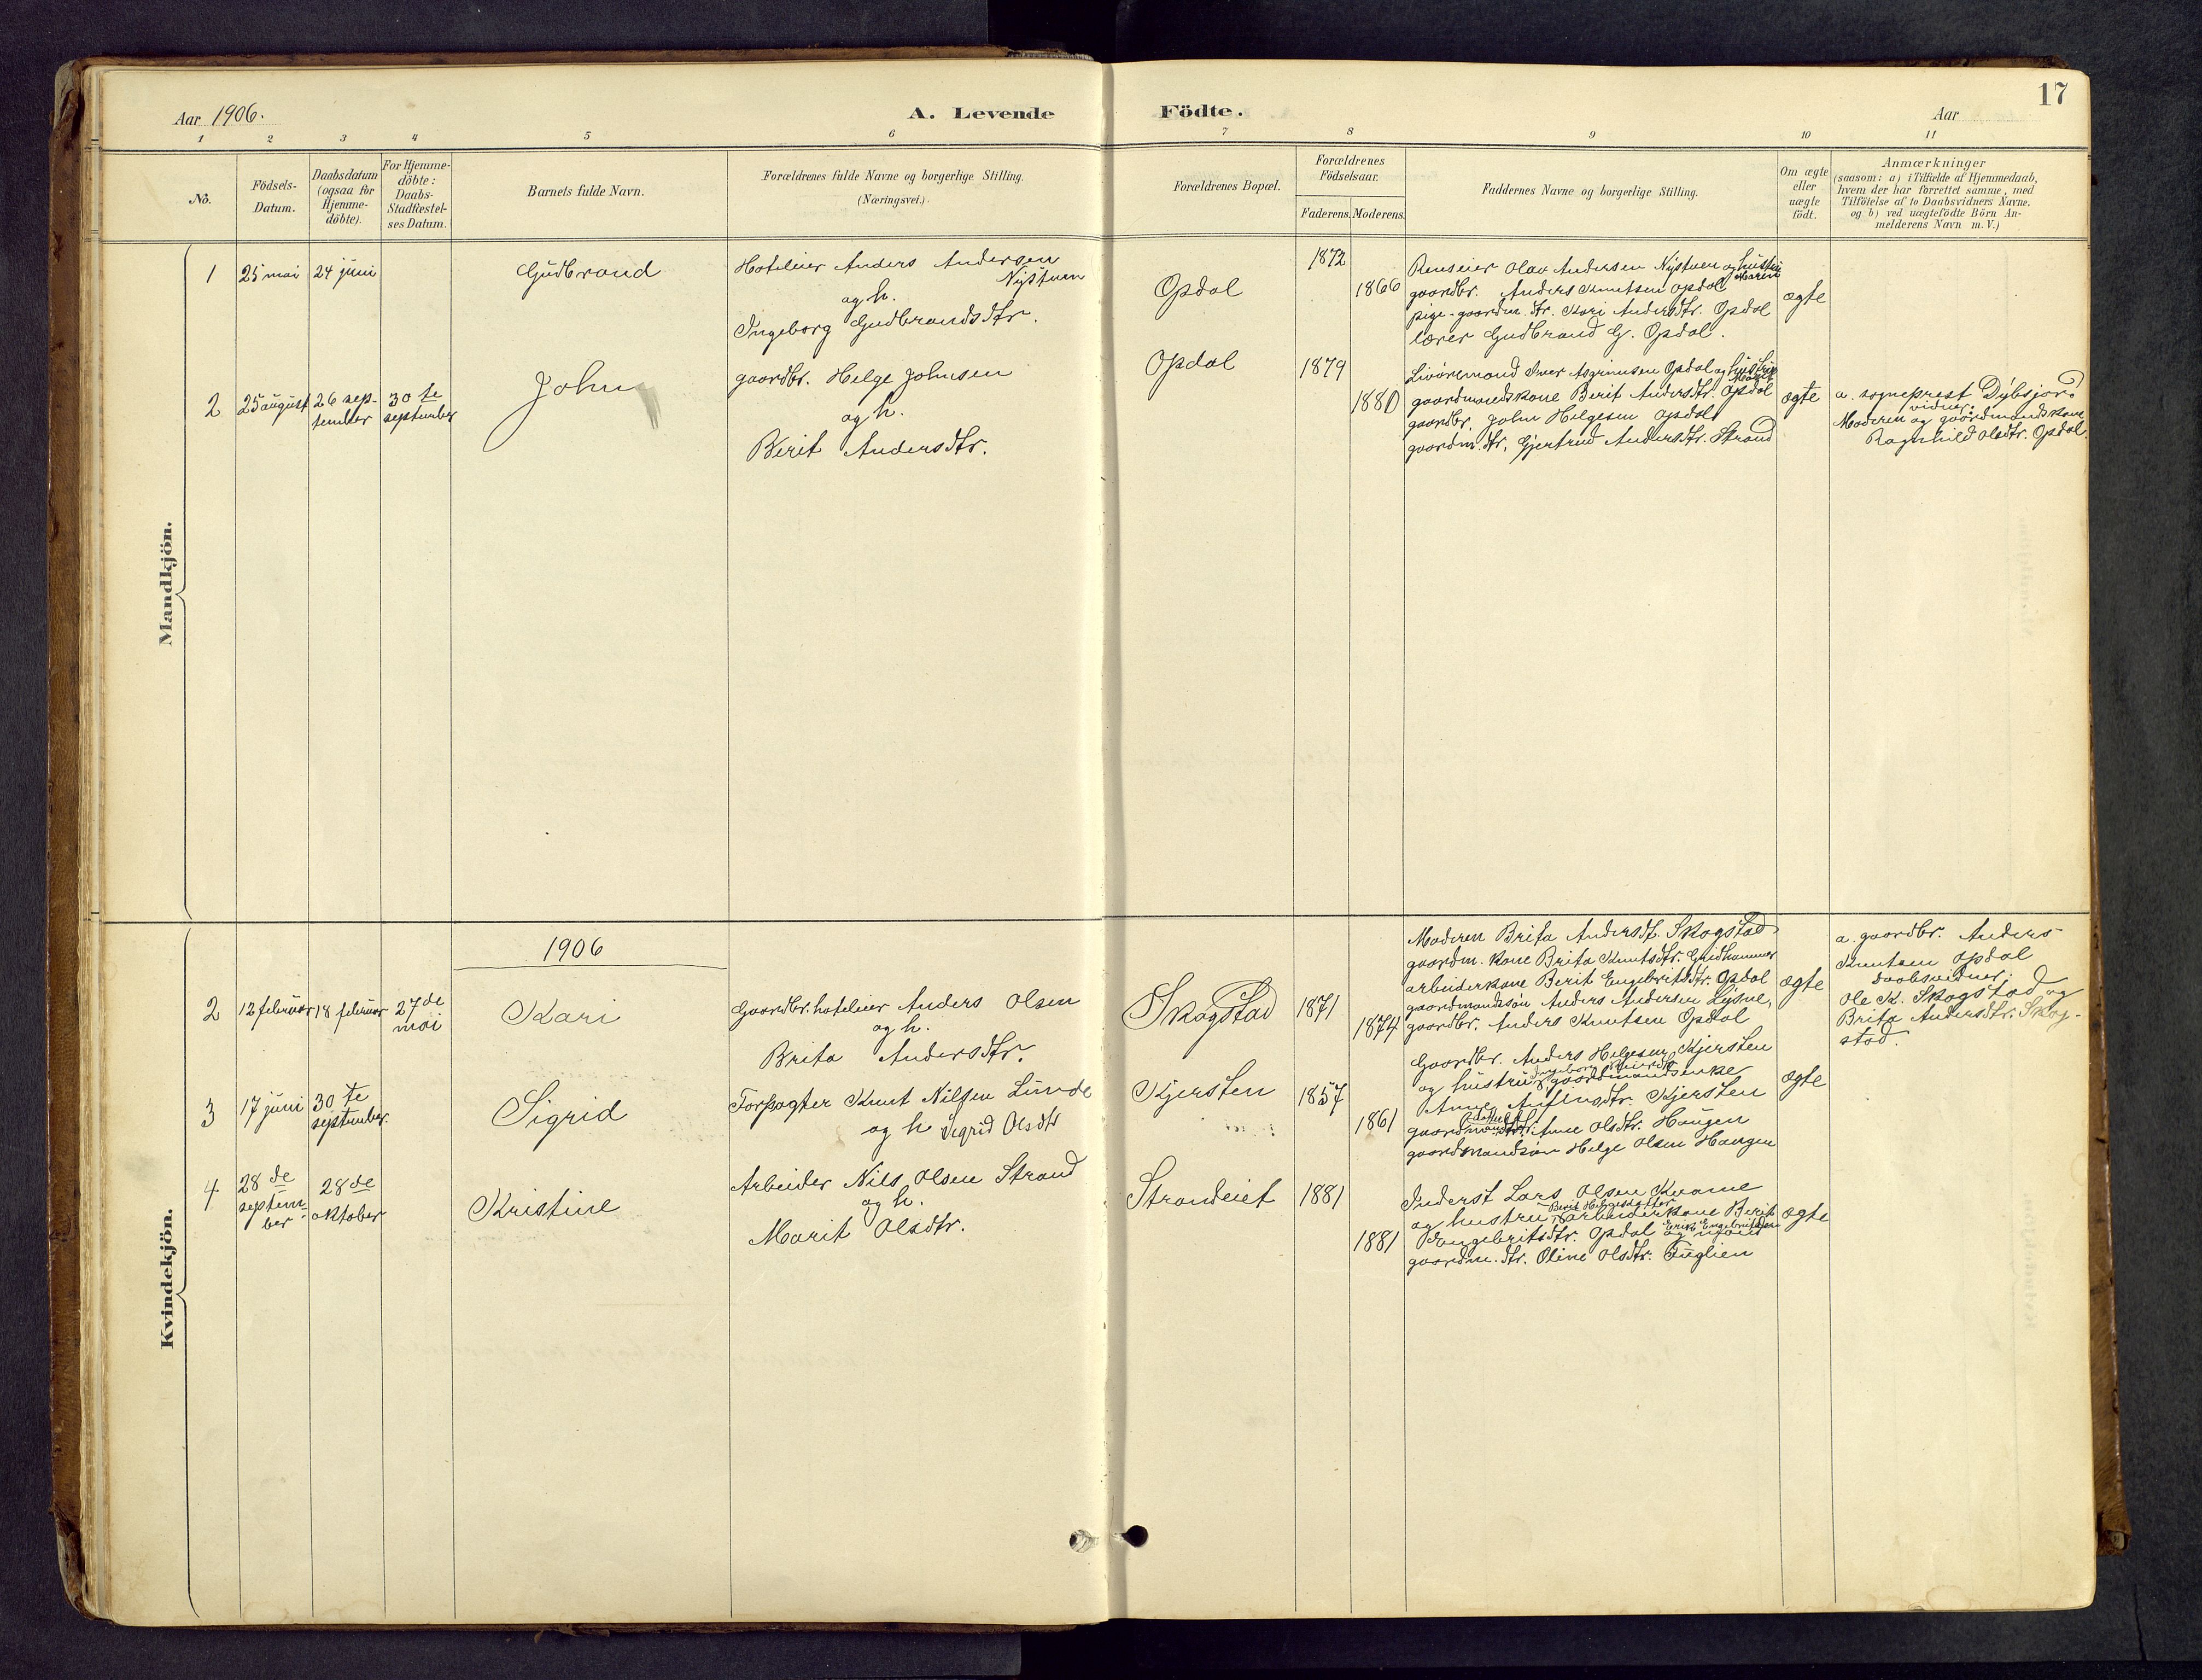 17
Aar 1906.
A. Levende Födte.
Aar
1 2 3 4 5 6 7 8 9 10 11
No.
Födsels-
Datum.
Daabsdatum
(ogsaa for
Hjemme-
döbte).
For Hjemme-
döbte:
Daabs-
Stadfæstel-
ses Datum.
Barnets fulde Navn.
Forældrenes fulde Navne og borgerlige Stilling.
(Næringsvei.)
Forældrenes Bopæl.
Forældrenes
Födselsaar.
Faderens. Moderens.
Faddernes Navne og borgerlige Stilling.
Om ægte
eller
uægte
födt.
Anmærkninger
(saasom: a) i Tilfælde af Hjemmedaab,
hvem der har forrettet samme, med
Tilföielse af to Daabsvidners Navne.
og b) ved uægtefödte Börn An-
melderens Navn m. V.)
Mandkjön.
1
25 mai
24 juni
Gudbrand
Hoteleier Anders Andersen
Nystuen
og h.
Ingeborg Gudbrandsdtr.
Opdal
1872
1866
Renseier Olav Andersen Nystuen og hustru
Maren
gaardbr. Anders Knutsen Opdal
pige-gaardm. dtr. Kari Andersdtr. Opdal
lærer Gudbrand G. Opdal.
ægte
2
25 august
26 sep-
tember
30te
september
John
gaardbr. Helge Johnsen
og h.
Berit Andersdtr.
Opdal
1879
1880
Asgrimsen Opdal og hustru
Marit
gaardmandskone Berit Andersdtr. Opdal
gaardbr. John Helgesen Opdal
gaardm. dtr. Gjertrud Andersdtr. Strand
ægte
a. sogneprest
vidner:
Moderen og gaardmandskone
Ragnhild Olsdtr. Opdal.
Kvindekjön.
1906
2
12 februar
18 februar
27de
mai
Kari
Gaardbr. hoteleier Anders Olsen
og h.
Brita Andersdtr.
Skogstad
1871
1874
Moderen Brita Andersdt. Skogstad
gaardm. kone Brita Knutsdtr. Gridhammer
arbeiderkone Berit Engebritsdtr. Opdal
gaardmandssøn Anders Andersen Lysne,
gaardbr. Anders Knutsen Opdal
ægte
a. gaardbr. Anders
Knutsen Opdal
Daabsvidner:
Ole K. Skogstad og
Brita Andersdtr. Skog-
stad.
3
17 juni
30te
september.
Sigrid
Forpagter Knut Nilsen Lunde
og h Sigrid Olsdtr
Kjersten
1857
1861
Gaardbr. Anders Helgesen Kjersten
og hustru Ingeborg gaardmandsenke
Anne Kjersten
gaardmandsdtr. Anne Olsdtr. Haugen
gaardmandsøn Helge Olsen Haugen
ægte
4
28de
septem-
ber
28de
oktober
Kristine
Arbeider Nils Olsen Strand
og h.
Marit Olsdtr.
Strandeiet
1881
1881
Inderst Lars Olsen Kvame
Berit Helgesdatter
og hustru, arbeiderkone Berit
Erik Engebritsen
Engebritsdtr. Opdal og
gaardm. dtr. Oline Olsdtr. Fuglien
ægte